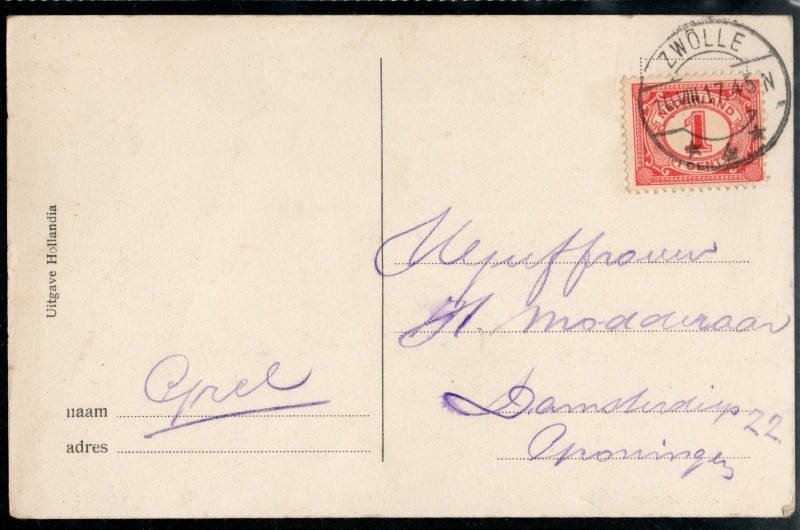 Uitgave Hollandia
naam
adres
ZWOLLE
NEDERLAND
1
CENT
Mejuffrouw
H. Modderaar
Damsterdiep 22
Groningen